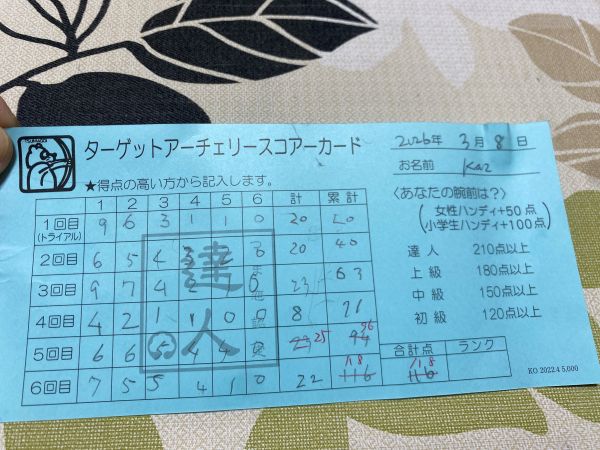 TSUMAGOI
ターゲットアーチェリースコアーカード
2026年 3月 8日
お名前 Kaz
★得点の高い方から記入します。
1 2 3 4 5 6 計 累計
1回目 9 6 3 1 1 0 20 20
(トライアル)
2回目 6 5 4 3 2 0 20 40
3回目 9 7 4 2 1 0 23 63
4回目 4 2 1 1 0 0 8 71
5回目 6 6 5 4 4 25 96
6回目 7 5 5 4 1 0 22 118 116
達人
〈あなたの腕前は?〉
(女性ハンディ+50点
小学生ハンディ+100点)
達人 210点以上
上級 180点以上
中級 150点以上
初級 120点以上
合計点 ランク
118
KO 2022.4 5,000